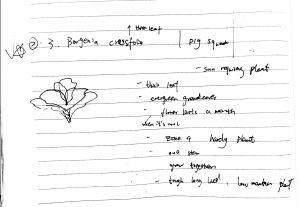 ↑ thick leaf
② 3. Bergenia crassifolia | pig squeak
- sun requiring plant
- thick leaf
- evergreen groundcover
- flower lasts a month
when it's cool
- zone 4 hardy plant
- one stem
grow together
- tough long leaf, low mainten plant